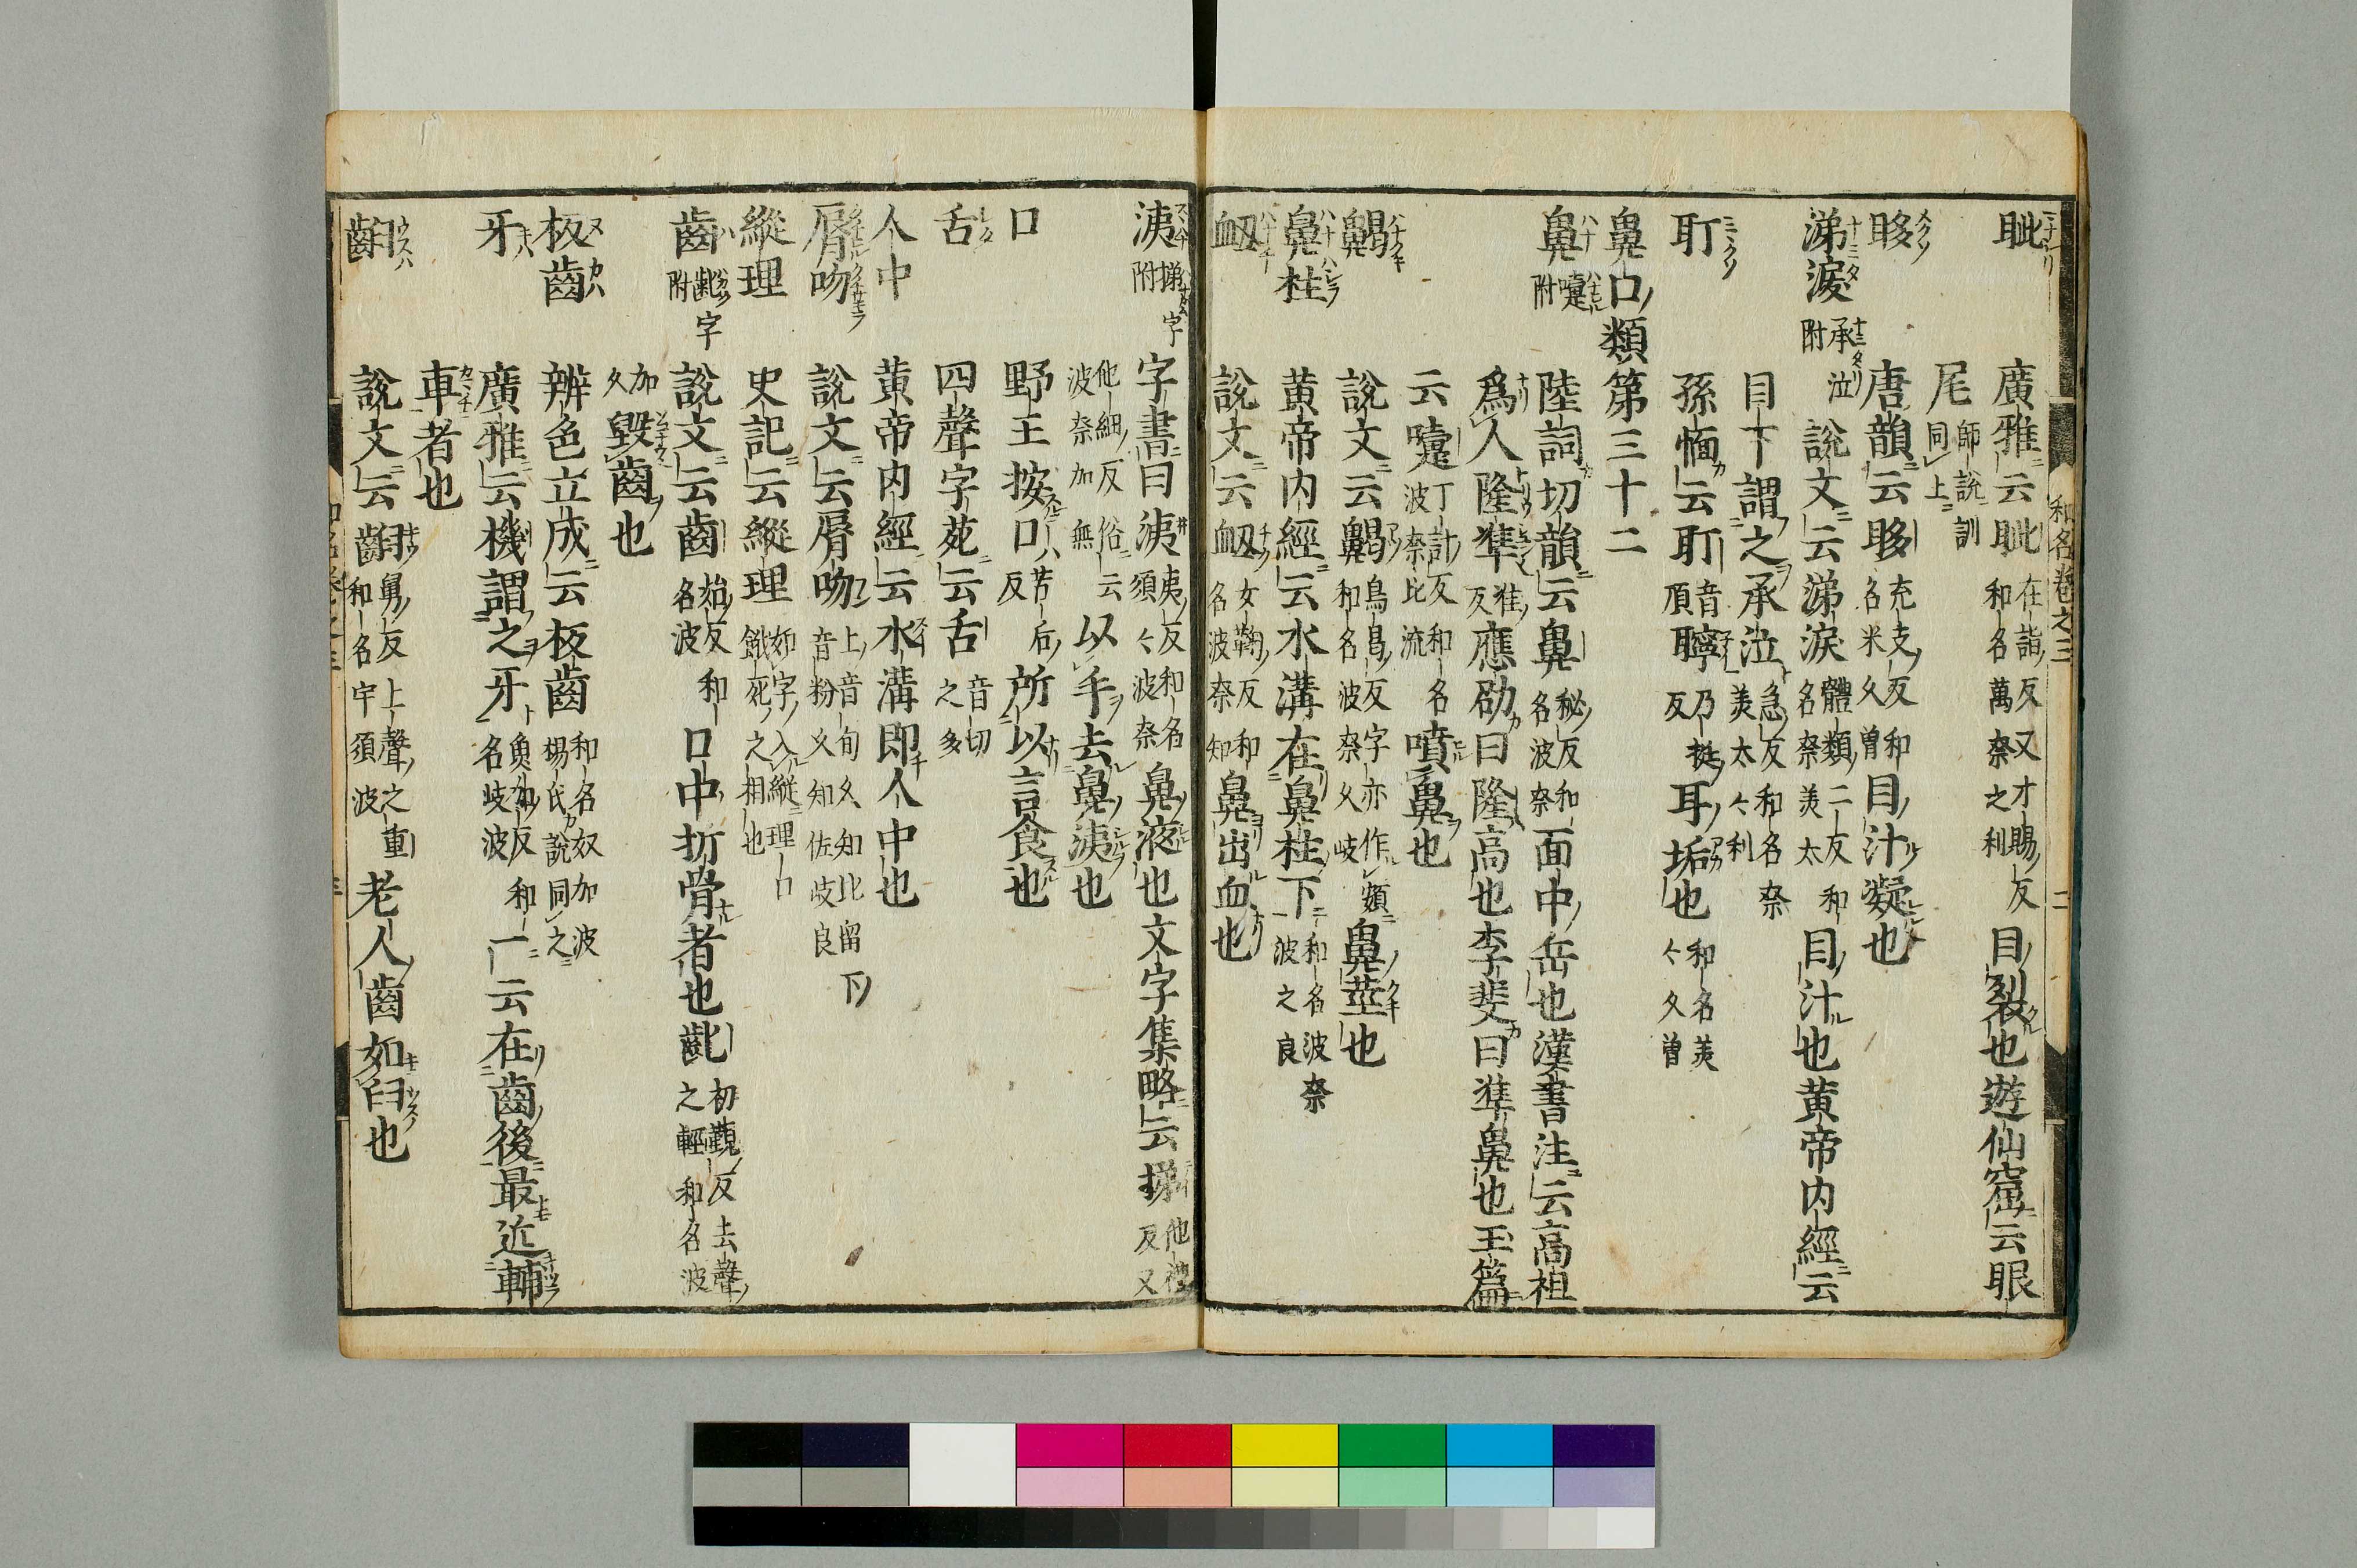 眦 廣雅云眦 在詣反又才賜反 和名萬奈之利 目裂也遊仙窟云眼
尾 師說訓同上
眵 唐韻云眵 充支反和名米久曽 目汁凝也
涕淚 承泣附 說文云涕淚 體類二反和名奈美太 目汁也黄帝内經云
目下謂之承泣 急反和名奈美太々利
耵 孫愐云耵 音頂 聹 乃挺反 耳垢也 和名美々久曽
鼻口類第三十二
鼻 嚔附 陸詞切韻云鼻 秘反和名波奈 面中岳也漢書注云高祖
爲人隆準 準反 應劭曰隆高也李斐曰準鼻也玉篇
云嚔 丁計反和名波奈比流 噴鼻也
說文云 鳥曷反字亦作頞和名波奈久岐 鼻莖也
鼻柱 黄帝内經云水溝在鼻柱下 和名波奈波之良
衄 說文云衄 女鞠反和名波奈知 鼻出血也
洟 字附 字書曰洟 夷反和名須々波奈 鼻液也文字集略云 他禮反又
他細反俗云波奈加無 以手去鼻洟也
口 野王按口 苦后反 所以言食也
舌 四聲字苑云舌 音切之多
人中 黄帝内經云水溝即人中也
脣吻 說文云脣吻 上音旬久知比留下音粉久知佐岐良
縱理 史記云縱理 如字入縱理口餓死之相也
齒 齔字附 說文云齒 始反和名波 口中折骨者也齔 初覲反去聲之輕和名波
加久 毀齒也
板齒 辨色立成云板齒 和名奴加波楊氏說同之
牙 廣雅云機謂之牙 魚加反和名岐波 一云在齒後最近輔
車者也
齨 說文云齨 舅反上聲之重和名宇須波 老人齒如臼也
和名卷之三 二